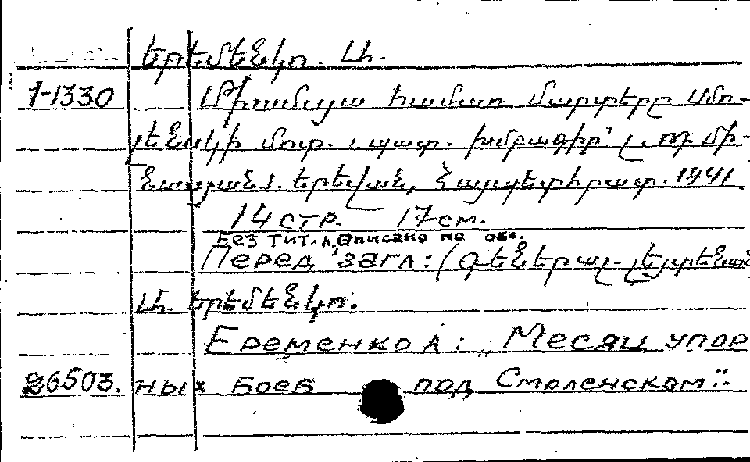 Երեմենկո. Ա.
1-1330 Միամսյա համառ մարտերը Սմո-
լենսկի մոտ. պատ. խմբագիր՝ Հ. Ո. Մի-
նասյան. Երեվան, Հայպետհրատ. 1941
14 стр. 17 см.
Без тит. л. Описано по обл.
Перед загл: (գեներալ-լեյտենանտ
Ա. Երեմենկո.
Еременко А: „Месяц упор
26503. ных боев под Смоленском"